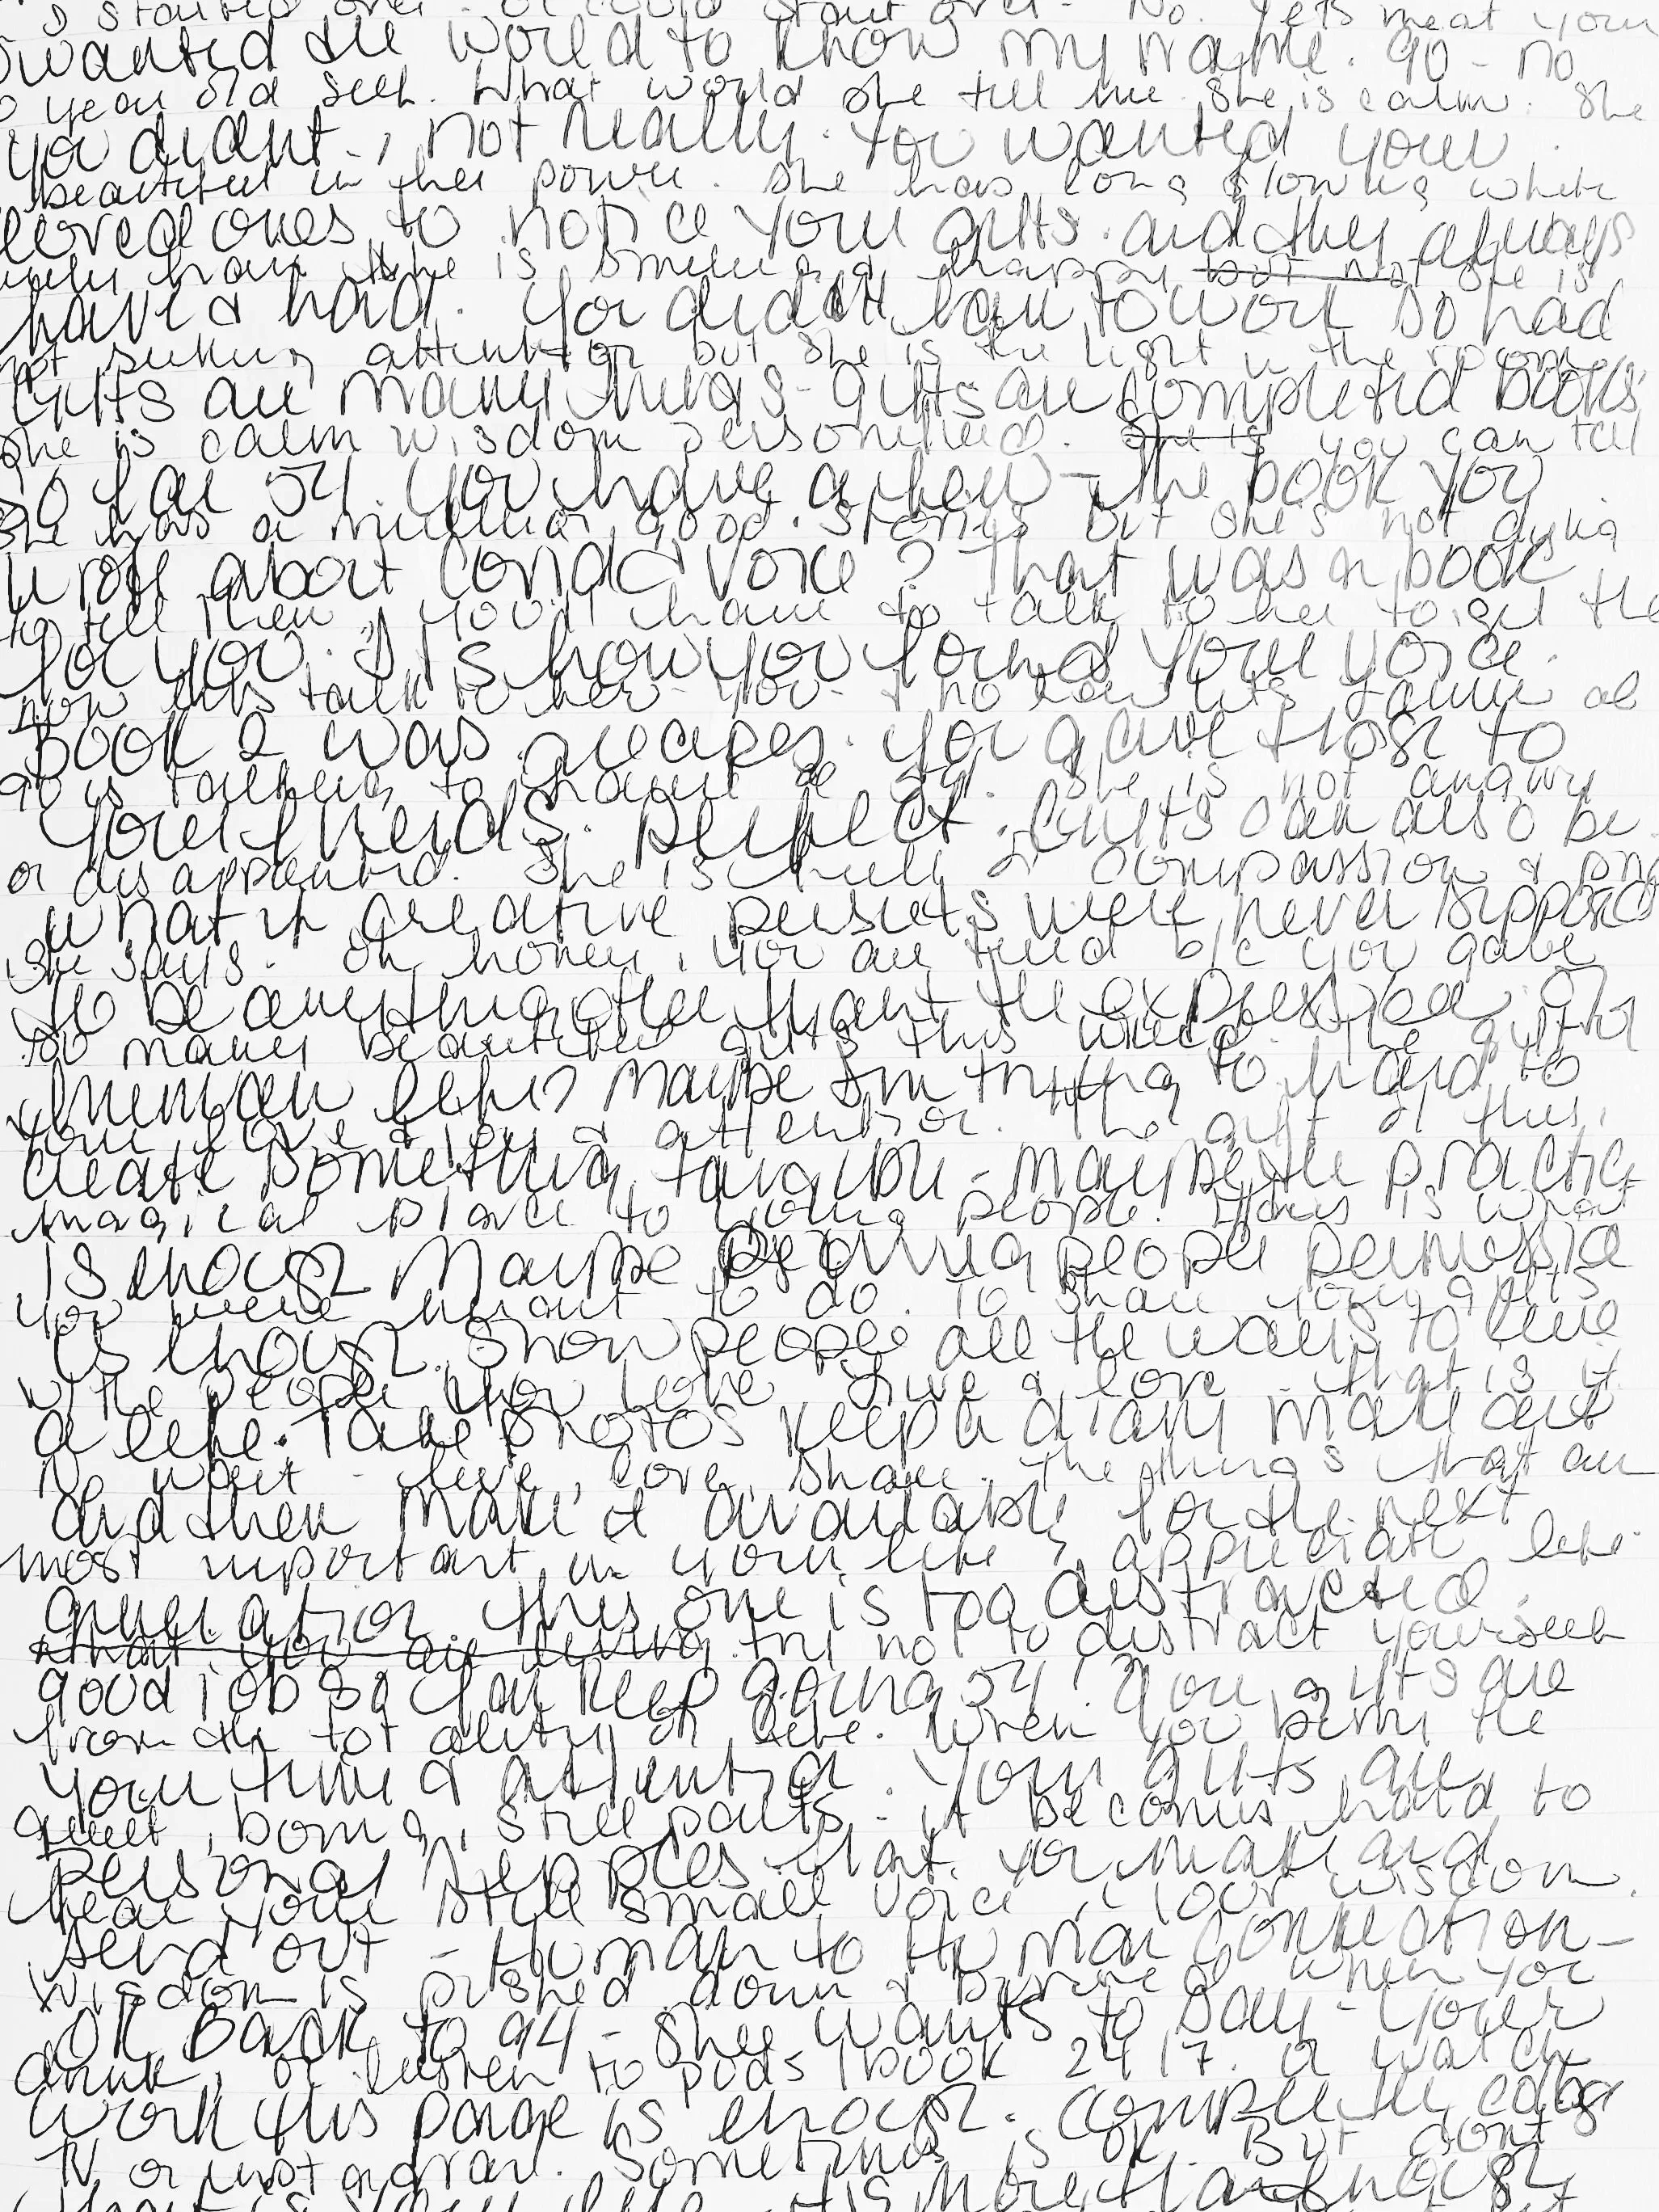 I started over. Or could start over - No. Let's meat your
wanted the world to know my name. 90 - no
year old self. What would she tell me. She is calm. She
you didnt, not really. You wanted your
beautiful in her power. She has long flowing white
loved ones to notice your gifts. and they always
hair. She is smiling & happy but not She is
have & had. You didnt have to work so hard
not seeking attention but she is the light in the room.
Gifts are many things - gifts are completed books
She is calm wisdom personified. She is you can tell
so far 54. You have a few - the book you
she has a million good stories but she's not dying
wrote about voice? That was a book
to tell them, you'd have to talk to her to get the
for you. It is how you found your voice.
now lets talk to her - you -
Book 2 was recipes. You gave those to
90 is talking to 54. She is not angry
your friends. Perfect. Gifts can also be
or disappointed. She is full of compassion &
What if creative persuits were never supposed
She says. Oh honey, you are tired b/c you gave
to be anything other than the expression of
too many beautiful gifts this week. The gift of
human life? Maybe Im trying to hard to
your love & joy & attention. The gift of this
create something tangible - maybe the practice
magical place to young people. This is what
is enough. Maybe giving people permission
you were meant to do. To share your gifts
is enough. Show people all the ways to live
w/ the people you love. Live & love - that is it
a life. Take photos keep a diary make art
live, love, share. The things that are
and then make it available for the next
most important in your life, appreciate life
generation. this one is too distracted.
that you are living. try not to distract yourself
good job so far keep going 54! Your gifts are
from the totality of life. When you bury the
your time & attention. Your gifts are
quiet, boring, still parts - it becomes hard to
personal that you make and
hear your still small voice, your wisdom.
send out - Human to Human connection -
wisdom is pushed down & when you
OK Back to 94 - She wants to say - your
drink, or listen to pods/book 24/7. or watch
work this page is enough. Complete
TV or instagram. Sometimes is OK. But dont
is more than enough